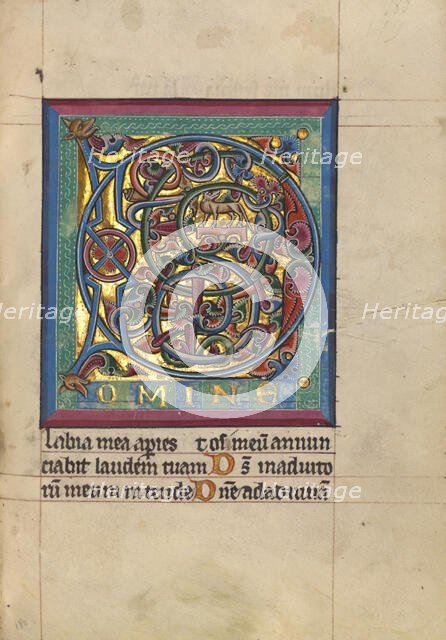 D
OMINE
labia mea apies ⁊ os meū annun
ciabit laudem tuam Ds̄ in adiuto
riū meum intende Dn̄e ad
Heritage
Heritage
Heritage
Heritage
Heritage
Heritage